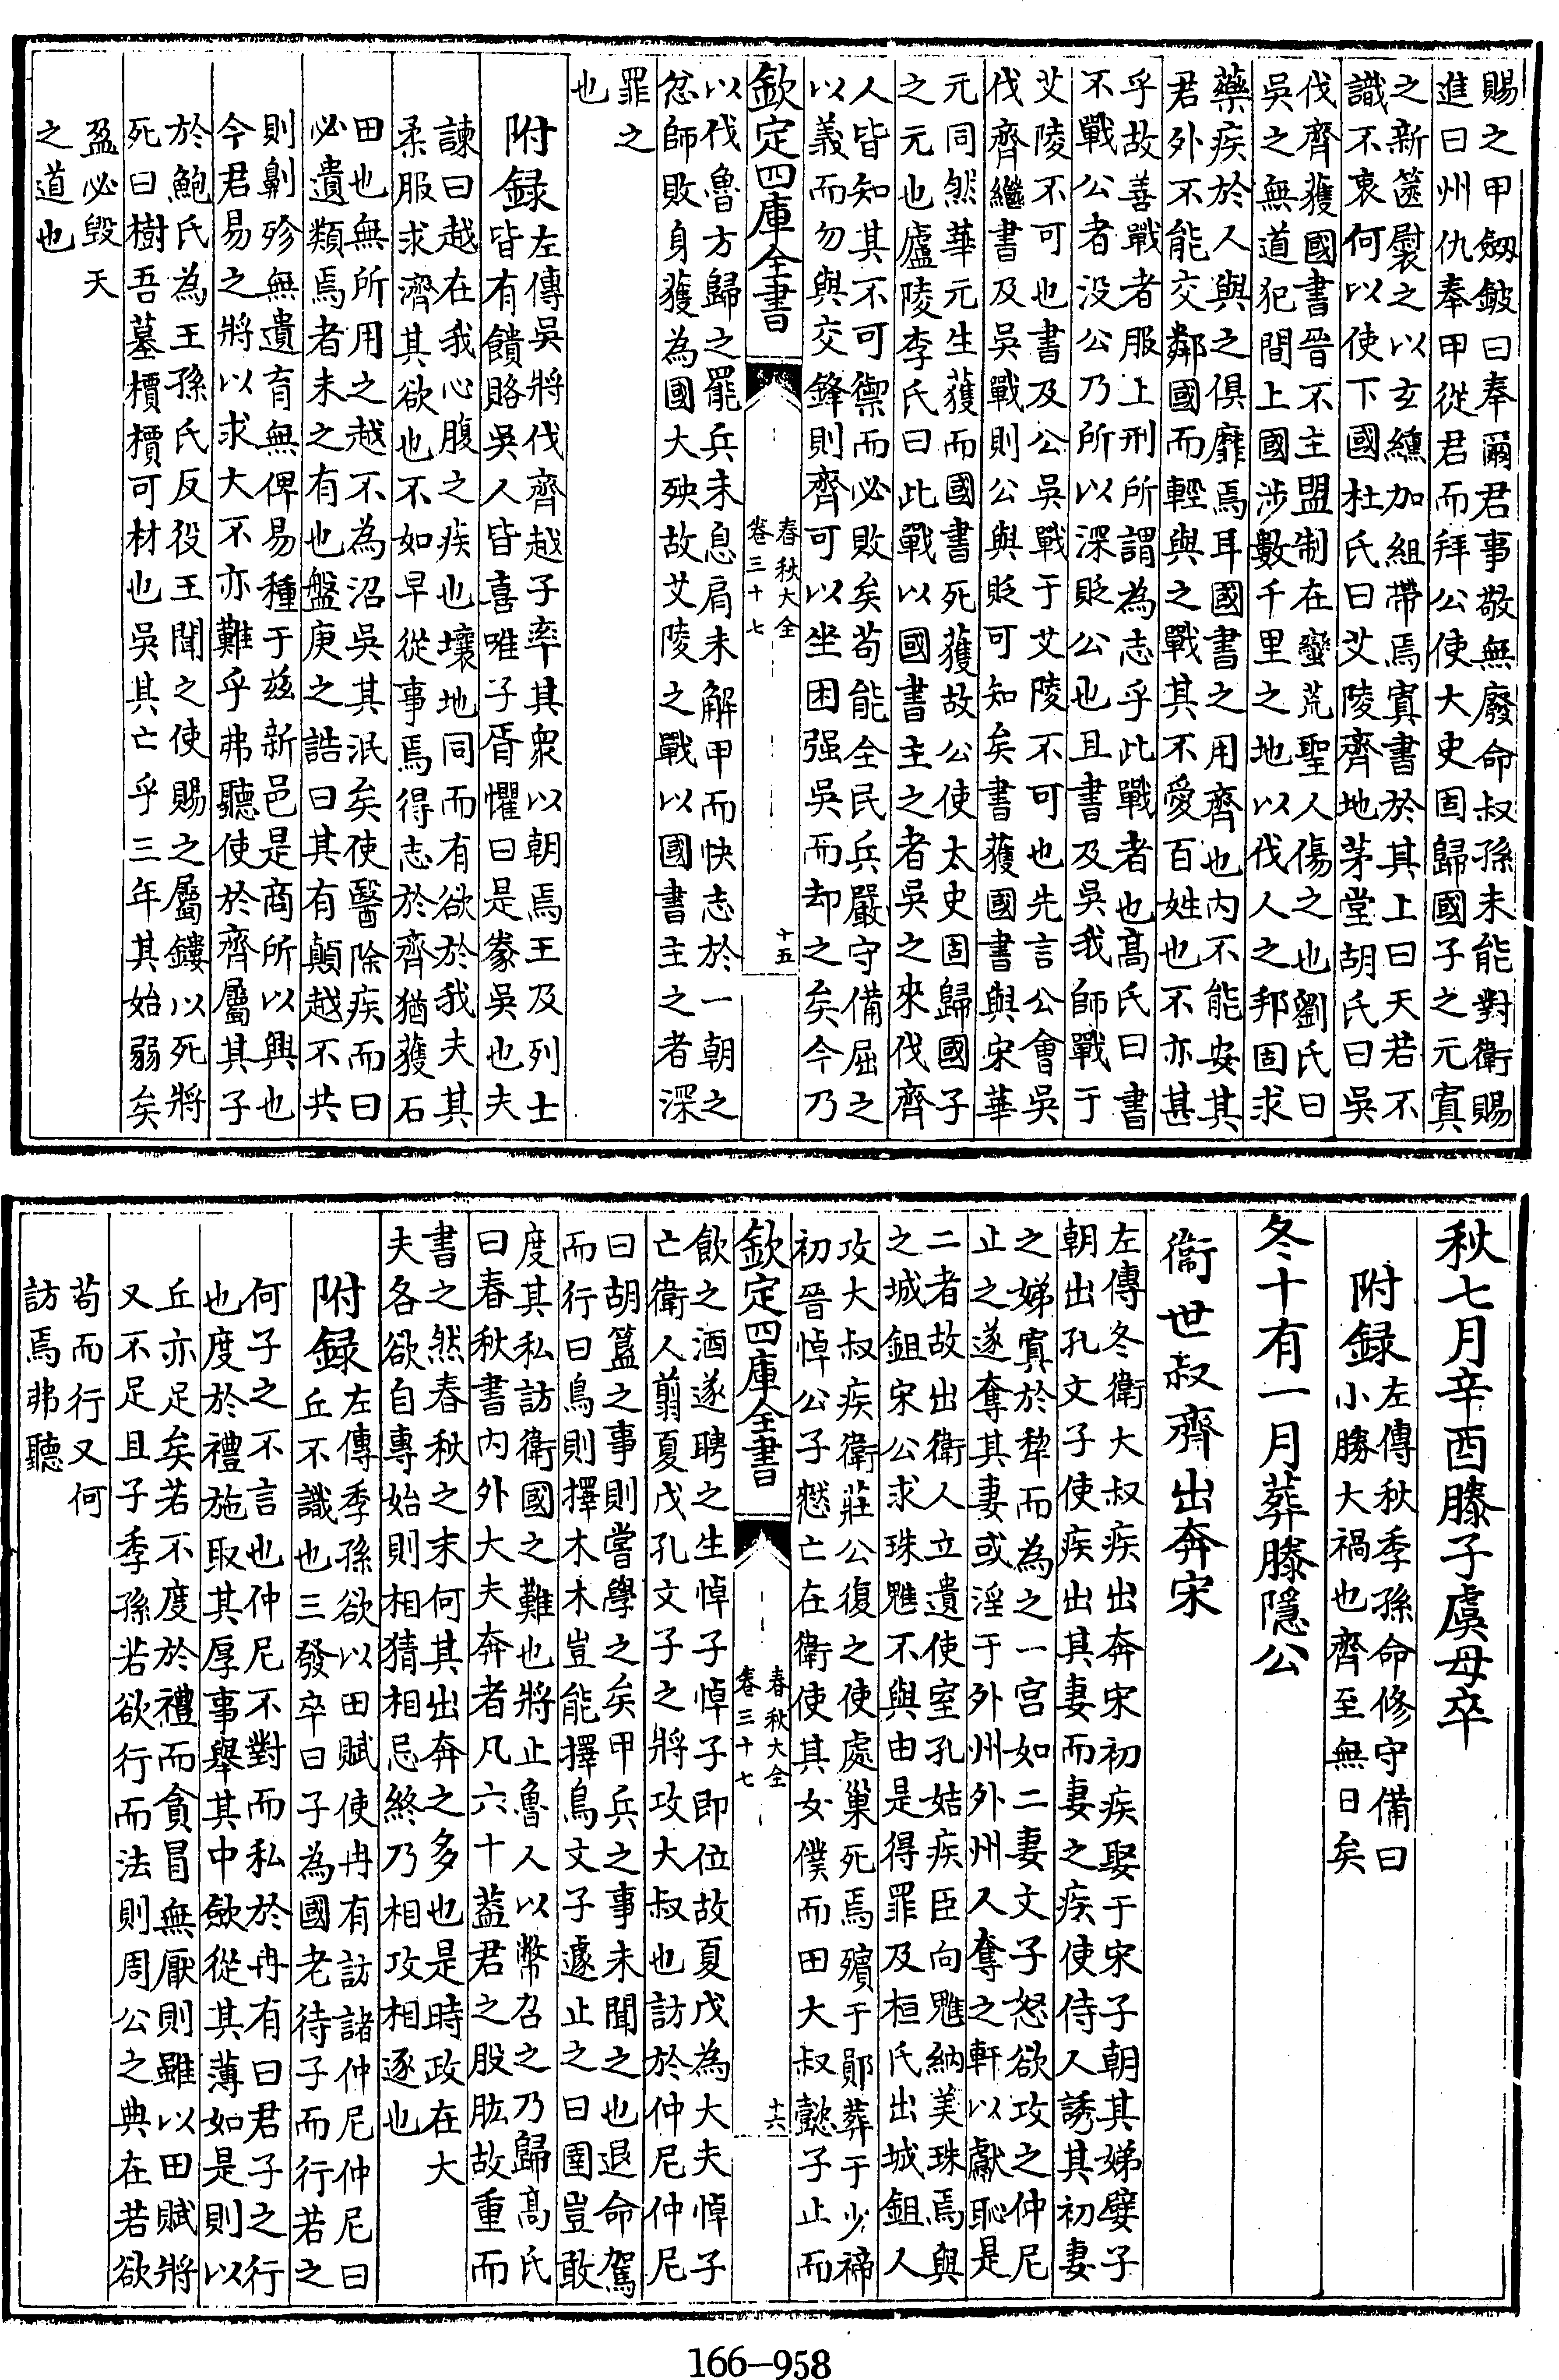 賜之甲劔鈹曰奉爾君事敬無廢命叔孫未能對衛賜
進曰州仇奉甲從君而拜公使大史固歸國子之元寘
之新篋褽之以玄纁加組帶焉寘書於其上曰天若不
識不衷何以使下國杜氏曰艾陵齊地茅堂胡氏曰吳
伐齊獲國書晉不主盟制在蠻荒聖人傷之也劉氏曰
吳之無道犯間上國涉數千里之地以伐人之邦固求
藥疾於人與之俱靡焉耳國書之用齊也内不能安其
君外不能交鄰國而輕與之戰其不愛百姓也不亦甚
乎故善戰者服上刑所謂為志乎此戰者也髙氏曰書
不戰公者没公乃所以深貶公也且書及吳我師戰于
艾陵不可也書及公吳戰于艾陵不可也先言公會吳
伐齊繼書及吳戰則公與貶可知矣書獲國書與宋華
元同然華元生獲而國書死獲故公使太史固歸國子
之元也廬陵李氏曰此戰以國書主之者吳之來伐齊
人皆知其不可禦而必敗矣茍能全民兵嚴守備屈之
以義而勿與交鋒則齊可以坐困强吳而却之矣今乃
欽定四庫全書
春秋大全
卷三十七
十五
以伐魯方歸之罷兵未息肩未解甲而快志於一朝之
忿師敗身獲為國大殃故艾陵之戰以國書主之者深
罪之
也
附録
左傳吳將伐齊越子率其衆以朝焉王及列士
皆有饋賂吳人皆喜唯子胥懼曰是豢吳也夫
諫曰越在我心腹之疾也壤地同而有欲於我夫其
柔服求濟其欲也不如早從事焉得志於齊猶獲石
田也無所用之越不為沼吳其泯矣使醫除疾而曰
必遺類焉者未之有也盤庚之誥曰其有顛越不共
則劓殄無遺育無俾易種于兹新邑是商所以興也
今君易之將以求大不亦難乎弗聽使於齊屬其子
於鮑氏為王孫氏反役王聞之使賜之屬鏤以死將
死曰樹吾墓檟檟可材也吳其亡乎三年其始弱矣
盈必毀天
之道也
秋七月辛酉滕子虞母卒
附録
左傳秋季孫命修守備曰
小勝大禍也齊至無日矣
冬十有一月葬滕隱公
衞世叔齊出奔宋
左傳冬衛大叔疾出奔宋初疾娶于宋子朝其娣嬖子
朝出孔文子使疾出其妻而妻之疾使侍人誘其初妻
之娣寘於犂而為之一宫如二妻文子怒欲攻之仲尼
止之遂奪其妻或淫于外州外州人奪之軒以獻恥是
二者故出衛人立遺使室孔姞疾臣向魋納美珠焉與
之城鉏宋公求珠魋不與由是得罪及桓氏出城鉏人
攻大叔疾衛莊公復之使處巢死焉殯于鄖葬于少禘
初晉悼公子憖亡在衛使其女僕而田大叔懿子止而
欽定四庫全書
春秋大全
卷三十七
十六
飲之酒遂聘之生悼子悼子即位故夏戊為大夫悼子
亡衛人翦夏戊孔文子之將攻大叔也訪於仲尼仲尼
曰胡簋之事則嘗學之矣甲兵之事未聞之也退命駕
而行曰鳥則擇木木豈能擇鳥文子遽止之曰圉豈敢
度其私訪衛國之難也將止魯人以幣召之乃歸髙氏
曰春秋書内外大夫奔者凡六十葢君之股肱故重而
書之然春秋之末何其出奔之多也是時政在大
夫各欲自專始則相猜相忌終乃相攻相逐也
附録
左傳季孫欲以田賦使冉有訪諸仲尼仲尼曰
丘不識也三發卒曰子為國老待子而行若之
何子之不言也仲尼不對而私於冉有曰君子之行
也度於禮施取其厚事舉其中斂從其薄如是則以
丘亦足矣若不度於禮而貪冒無厭則雖以田賦將
又不足且子季孫若欲行而法則周公之典在若欲
茍而行又何
訪焉弗聽
166—958